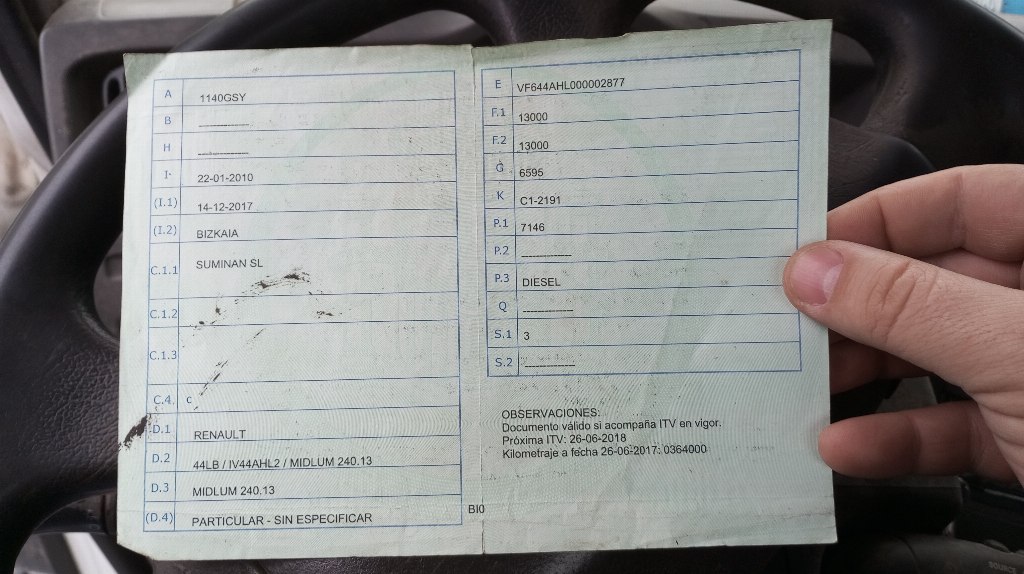 A 1140GSY
B ----------------
H ----------------
I 22-01-2010
(I.1) 14-12-2017
(I.2) BIZKAIA
C.1.1 SUMINAN SL
C.1.2
C.1.3
C.4 C
D.1 RENAULT
D.2 44LB / IV44AHL2 / MIDLUM 240.13
D.3 MIDLUM 240.13
(D.4) PARTICULAR - SIN ESPECIFICAR
BI0
E VF644AHL000002877
F.1 13000
F.2 13000
G 6595
K C1-2191
P.1 7146
P.2 ----------------
P.3 DIESEL
Q ----------------
S.1 3
S.2 ----------------
OBSERVACIONES:
Documento válido si acompaña ITV en vigor.
Próxima ITV: 26-06-2018
Kilometraje a fecha 26-06-2017: 0364000
SOURCE